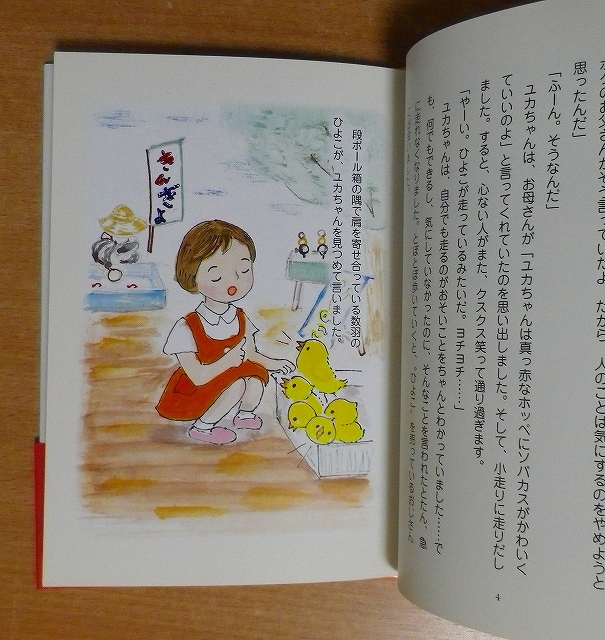 ボクのお父さんがそう言っていたよ。だから、人のことは気にするのをやめようと
思ったんだ」
「ふーん。そうなんだ」
ユカちゃんは、お母さんが「ユカちゃんは真っ赤なホッペにソバカスがかわいく
ていいのよ」と言ってくれていたのを思い出しました。そして、小走りに走りだし
ました。すると、心ない人がまた、クスクス笑って通り過ぎます。
「やーい。ひよこが走っているみたいだ。ヨチヨチ……」
ユカちゃんは、自分でも走るのがおそいことをちゃんとわかっていました……で
も、何でもできるし、気にしていなかったのに、そんなことを言われたとたん、急
に走れなくなりました。とぼとぼ歩いていくと、
4
段ボール箱の隅で肩を寄せ合っている数羽の
ひよこが、ユカちゃんを見つめて言いました。
きんぎょ